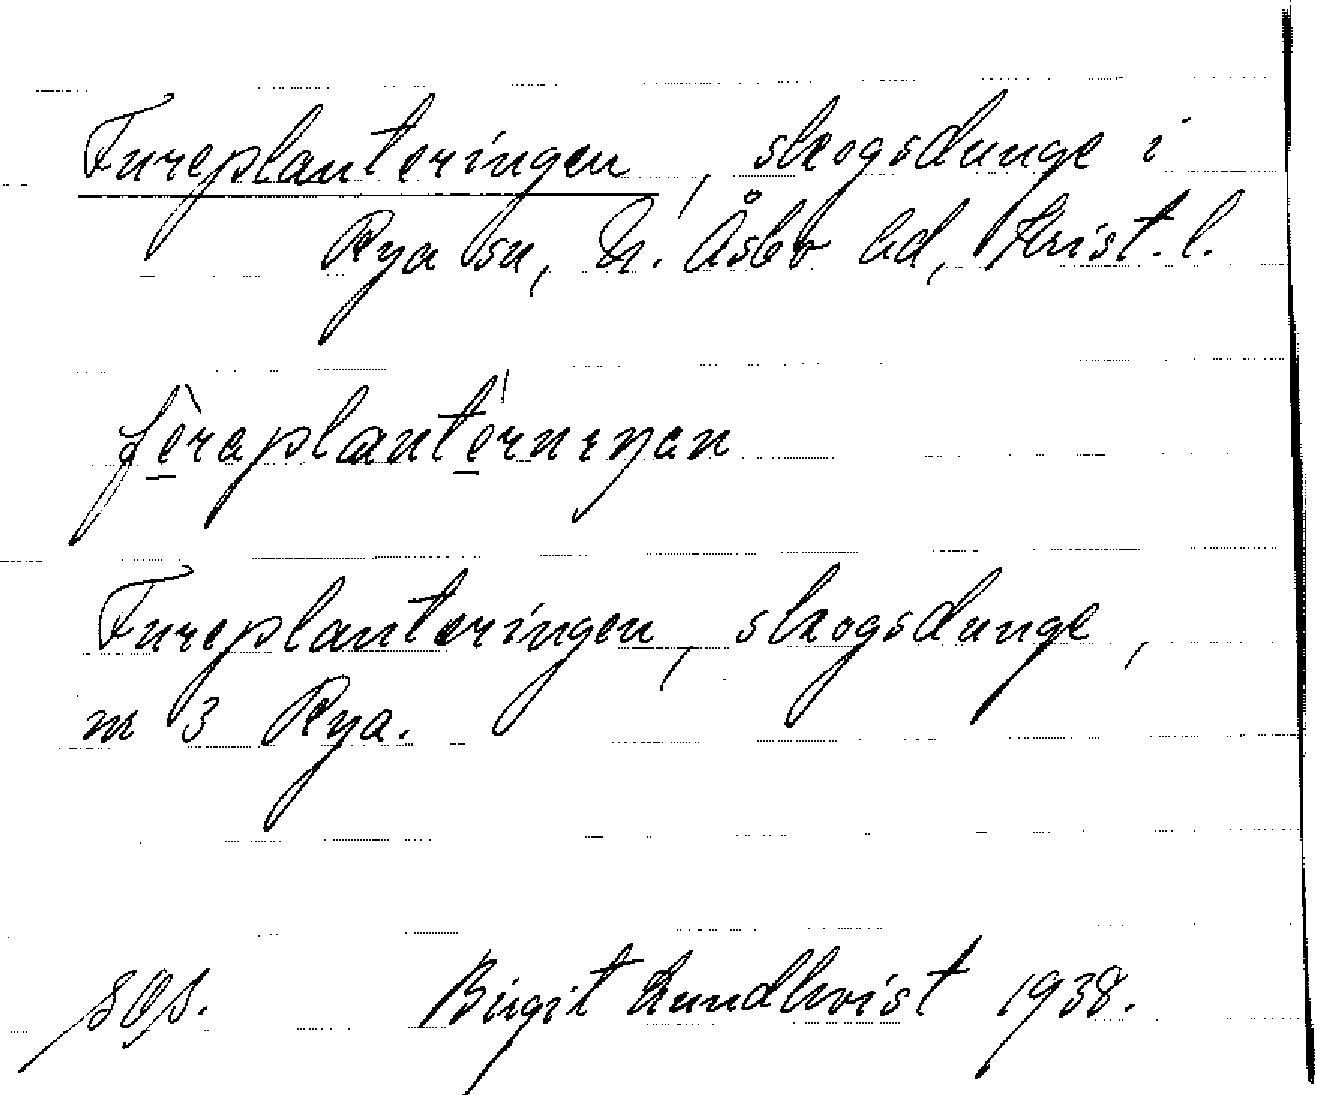 Fureplanteringen, skogsdunge i
Rya sn, N. Åsbo hd, Krist. l.
Fureplanteringen, skogsdunge,
nr 3 Rya.
Birgit Lundkvist 1938.